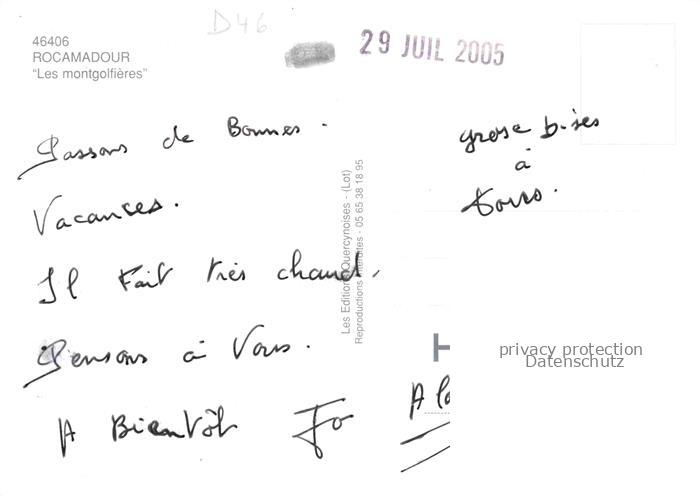 D46
46406
ROCAMADOUR
"Les montgolfières"
29 JUIL 2005
Passons de Bonnes.
Vacances.
Il fait très chaud.
Pensons à Vous.
A Bientôt
grose bises
à
tous.
A
H
Les Editions Quercynoises - (Lot)
Reproductions - 05 65 38 18 95
privacy protection
Datenschutz